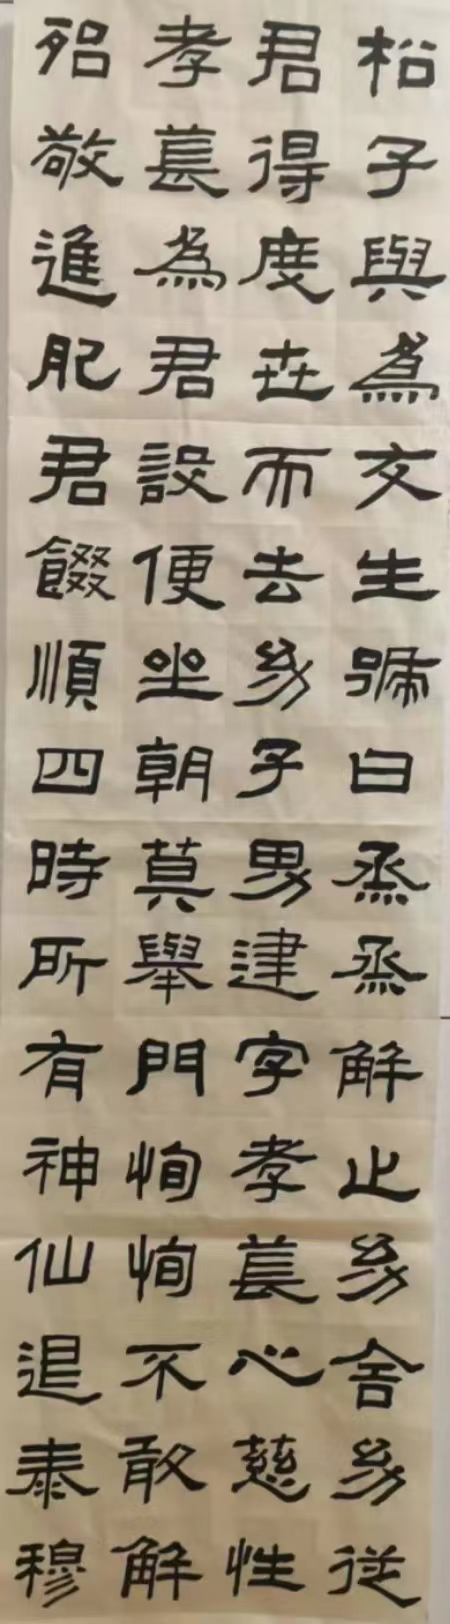 松子與為交生號曰烝烝解止幼舍幼從
君得度世而去幼子男建字孝萇心慈性
孝萇為君設便坐朝莫舉門恂恂不敢解
殆敬進肥君餟順四時所有神仙退泰穆